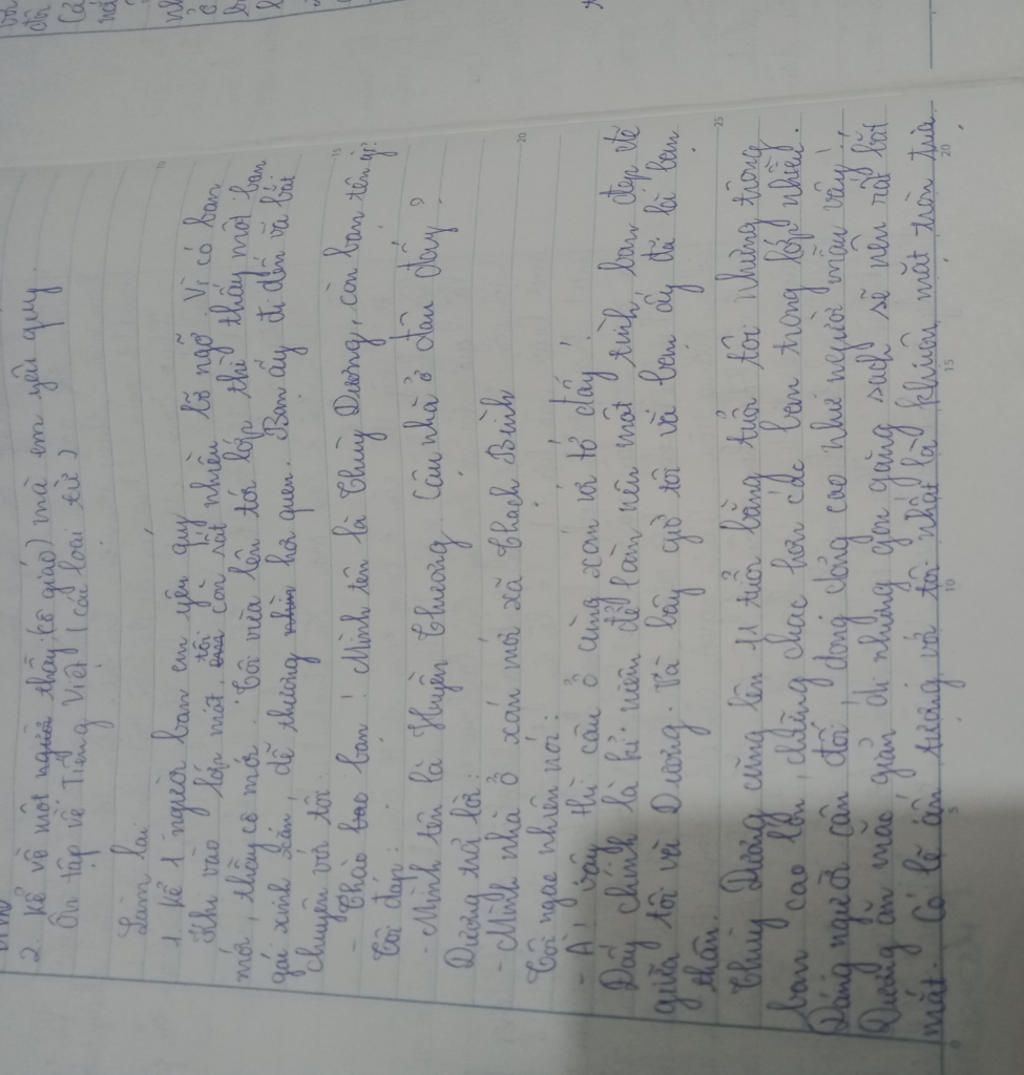 2. Kể về một người thầy (cô giáo) mà em yêu quý
Ôn tập về Tiếng Việt (các loại từ)
Làm bài
1. Kể 1 người bạn em yêu quý
Khi vào lớp một, tôi còn rất nhiên bỡ ngỡ. Vì có bạn
mới, thầy cô mới. Tôi vừa lên tới lớp thì thấy một bạn
gái xinh xắn, dễ thương nhìn hơi quen. Bạn ấy đi đến và bắt
chuyện với tôi.
- Chào bạn! Mình tên là Thùy Dương, còn bạn tên gì?
Tôi đáp:
- Mình tên là Huyền Thương. Cậu nhà ở đâu đấy?
Dương trả lời:
- Mình nhà ở xóm mới xã Thạch Bình
Tôi ngạc nhiên nói:
- À! vậy thì cậu ở cùng xóm với tớ đấy!
Đấy chính là kỉ niệm để làm nên một tình bạn đẹp đẽ
giữa tôi và Dương. Và bây giờ tôi và bạn ấy đã là bạn
thân.
Thùy Dương cũng lên 11 tuổi bằng tuổi tôi nhưng trông
bạn cao lớn, chững chạc hơn các bạn trong lớp nhiều.
Dáng người cân đối, dong dỏng cao như người mẫu vậy!
Dương ăn mặc giản dị nhưng gọn gàng sạch sẽ nên rất bắt
mắt. Có lẽ ấn tượng với tôi nhất là khuôn mặt tròn trịa